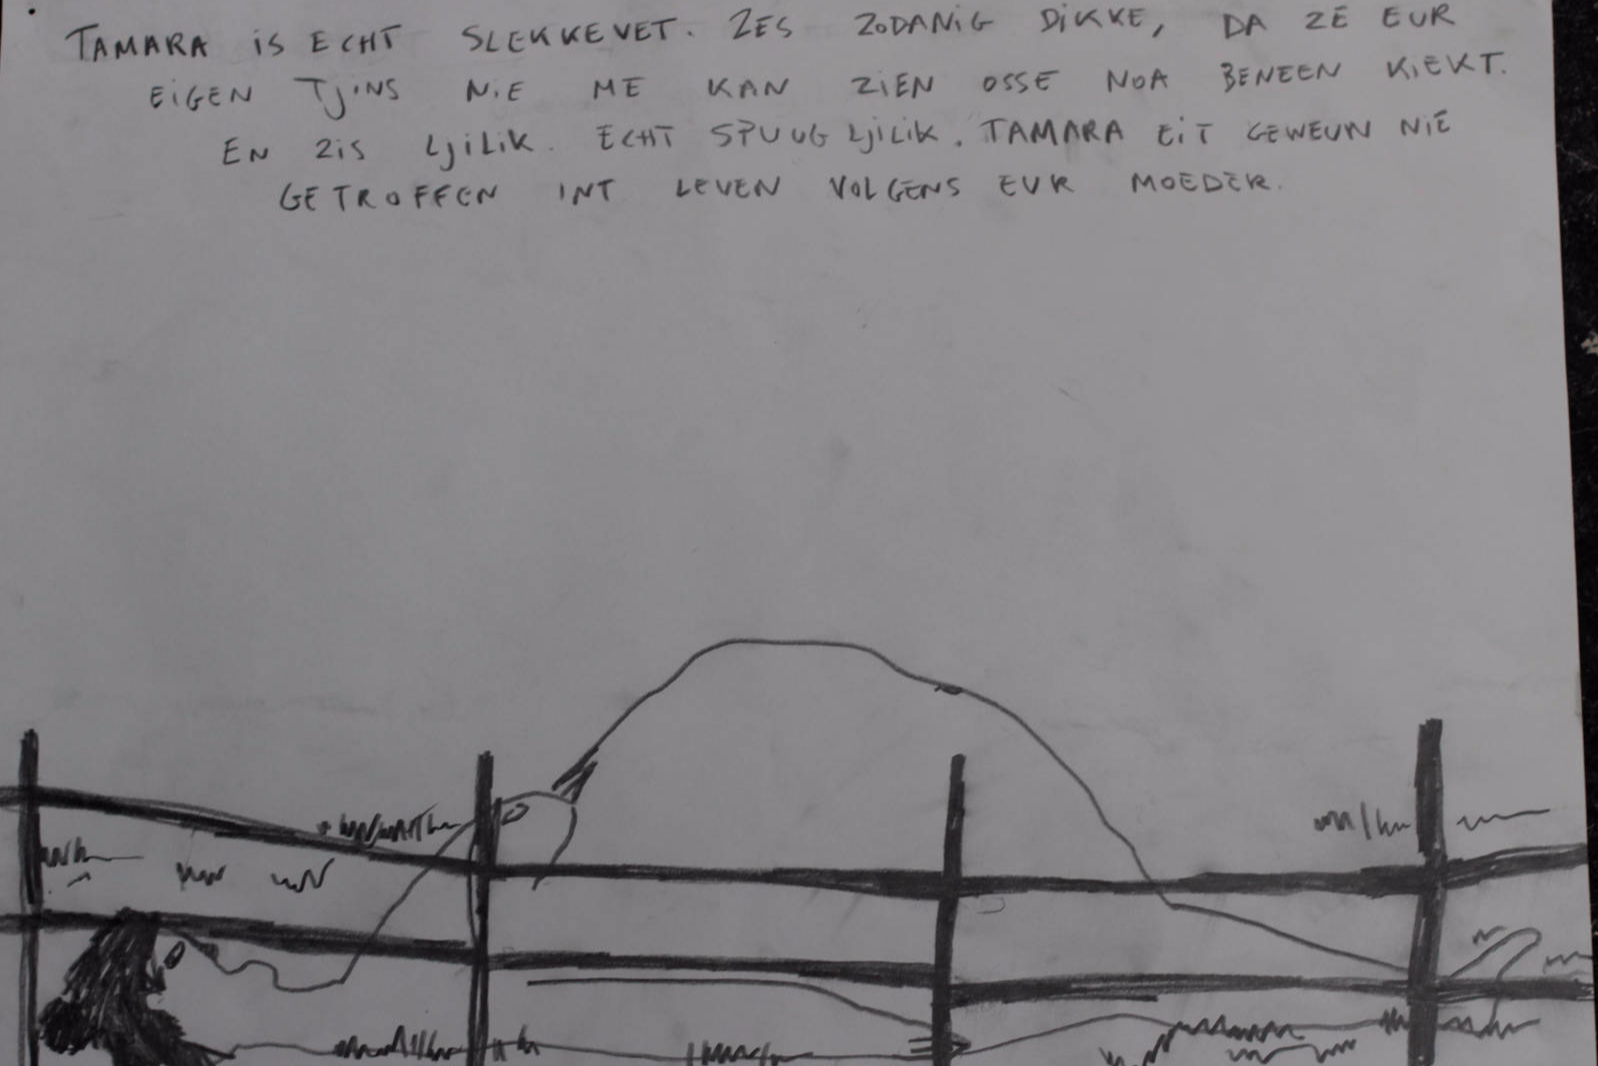 TAMARA IS ECHT SLEKKEVET. ZES ZODANIG DIKKE, DA ZE EUR
EIGEN TJINS NIE ME KAN ZIEN OSSE NOA BENEEN KIEKT.
EN ZIS LJILIK. ECHT SPUUG LJILIK. TAMARA EIT GEWEUN NIE
GETROFFEN INT LEVEN VOLGENS EUR MOEDER.